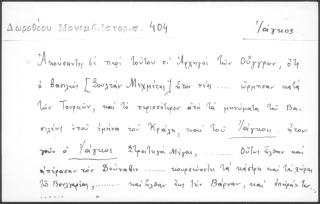 Δωροθέου Μονεμβ. Ἱστορ. σ. 404
Ἰάγκος
"Ἀκούσαντες δὲ περὶ τούτου οἱ Ἀρχηγοὶ τῶν Οὔγγρων, ὅτι
ὁ βασιλεὺς [Σουλτὰν Μεχμέτης] ἦτον νέος .... ὥρμησαν κατὰ
τῶν Τουρκῶν, καὶ τὸ περισσότερον ἀπὸ τὰ μηνύματα τοῦ Βα-
σιλέως ὁποῦ ἐμήνα τὸν Κράλη, καὶ τοῦ Ἰάγκου. ἦτον
γοῦν ὁ Ἰάγκος Στρατηγὸς Μέγας, ........ Οὗτοι ἦλθαν καὶ
ἐπέρασαν τὸν Δούναβιν .... κουρσεύοντες τὰ κάστρη καὶ τὰ χώρας
τῆς Βουλγαρίας, ........ καὶ ἦλθαν ἕως τὴν Βάρναν, καὶ ἐπῆραν την...
........ "